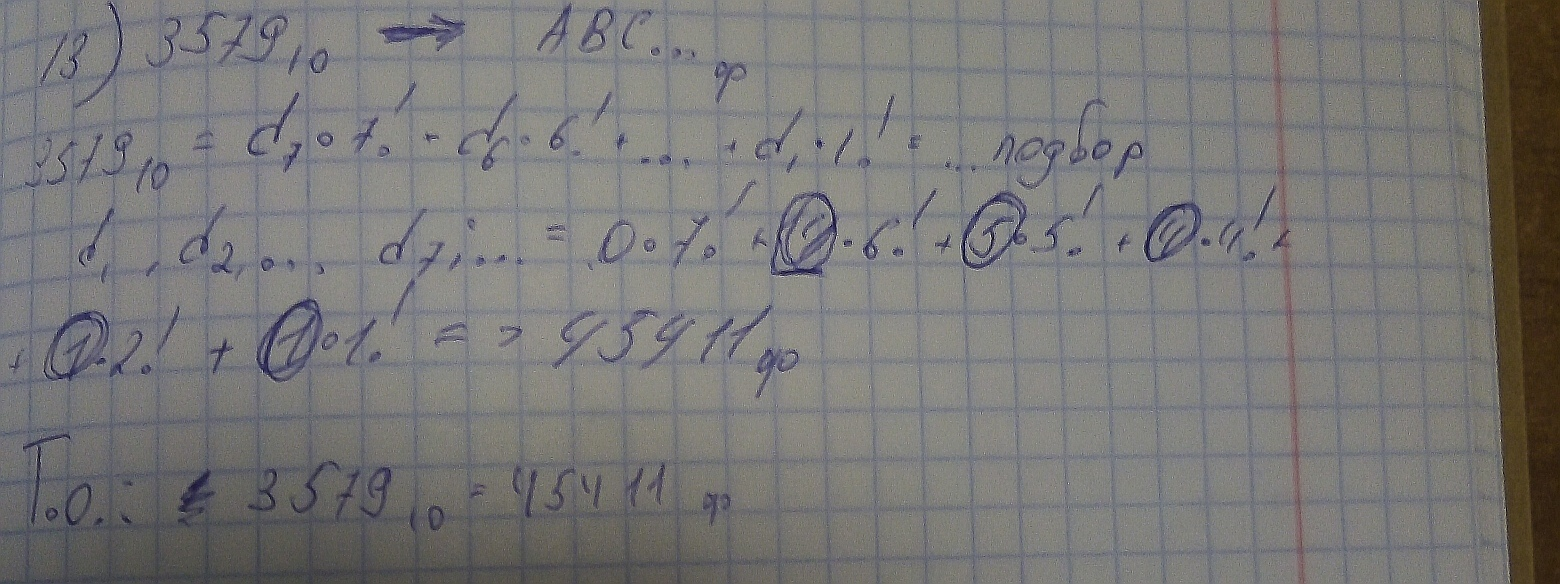 13) 3579₁₀ → ABC...ф
3579₁₀ = d₇·7! + d₆·6! + ... + d₁·1! = ... подбор
d₁, d₂, ..., d₇; ... = 0·7! + 4·6! + 5·5! + 4·4! +
+ 1·2! + 1·1! => 45411ф
Т.О.: 3579₁₀ = 45411ф